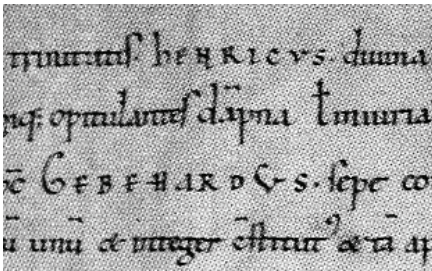 trinitatis. hEHRICVS. diuina
opitulantes dāpna ł iniuria
GEBEHARDVS. sepe co
unū & integer &